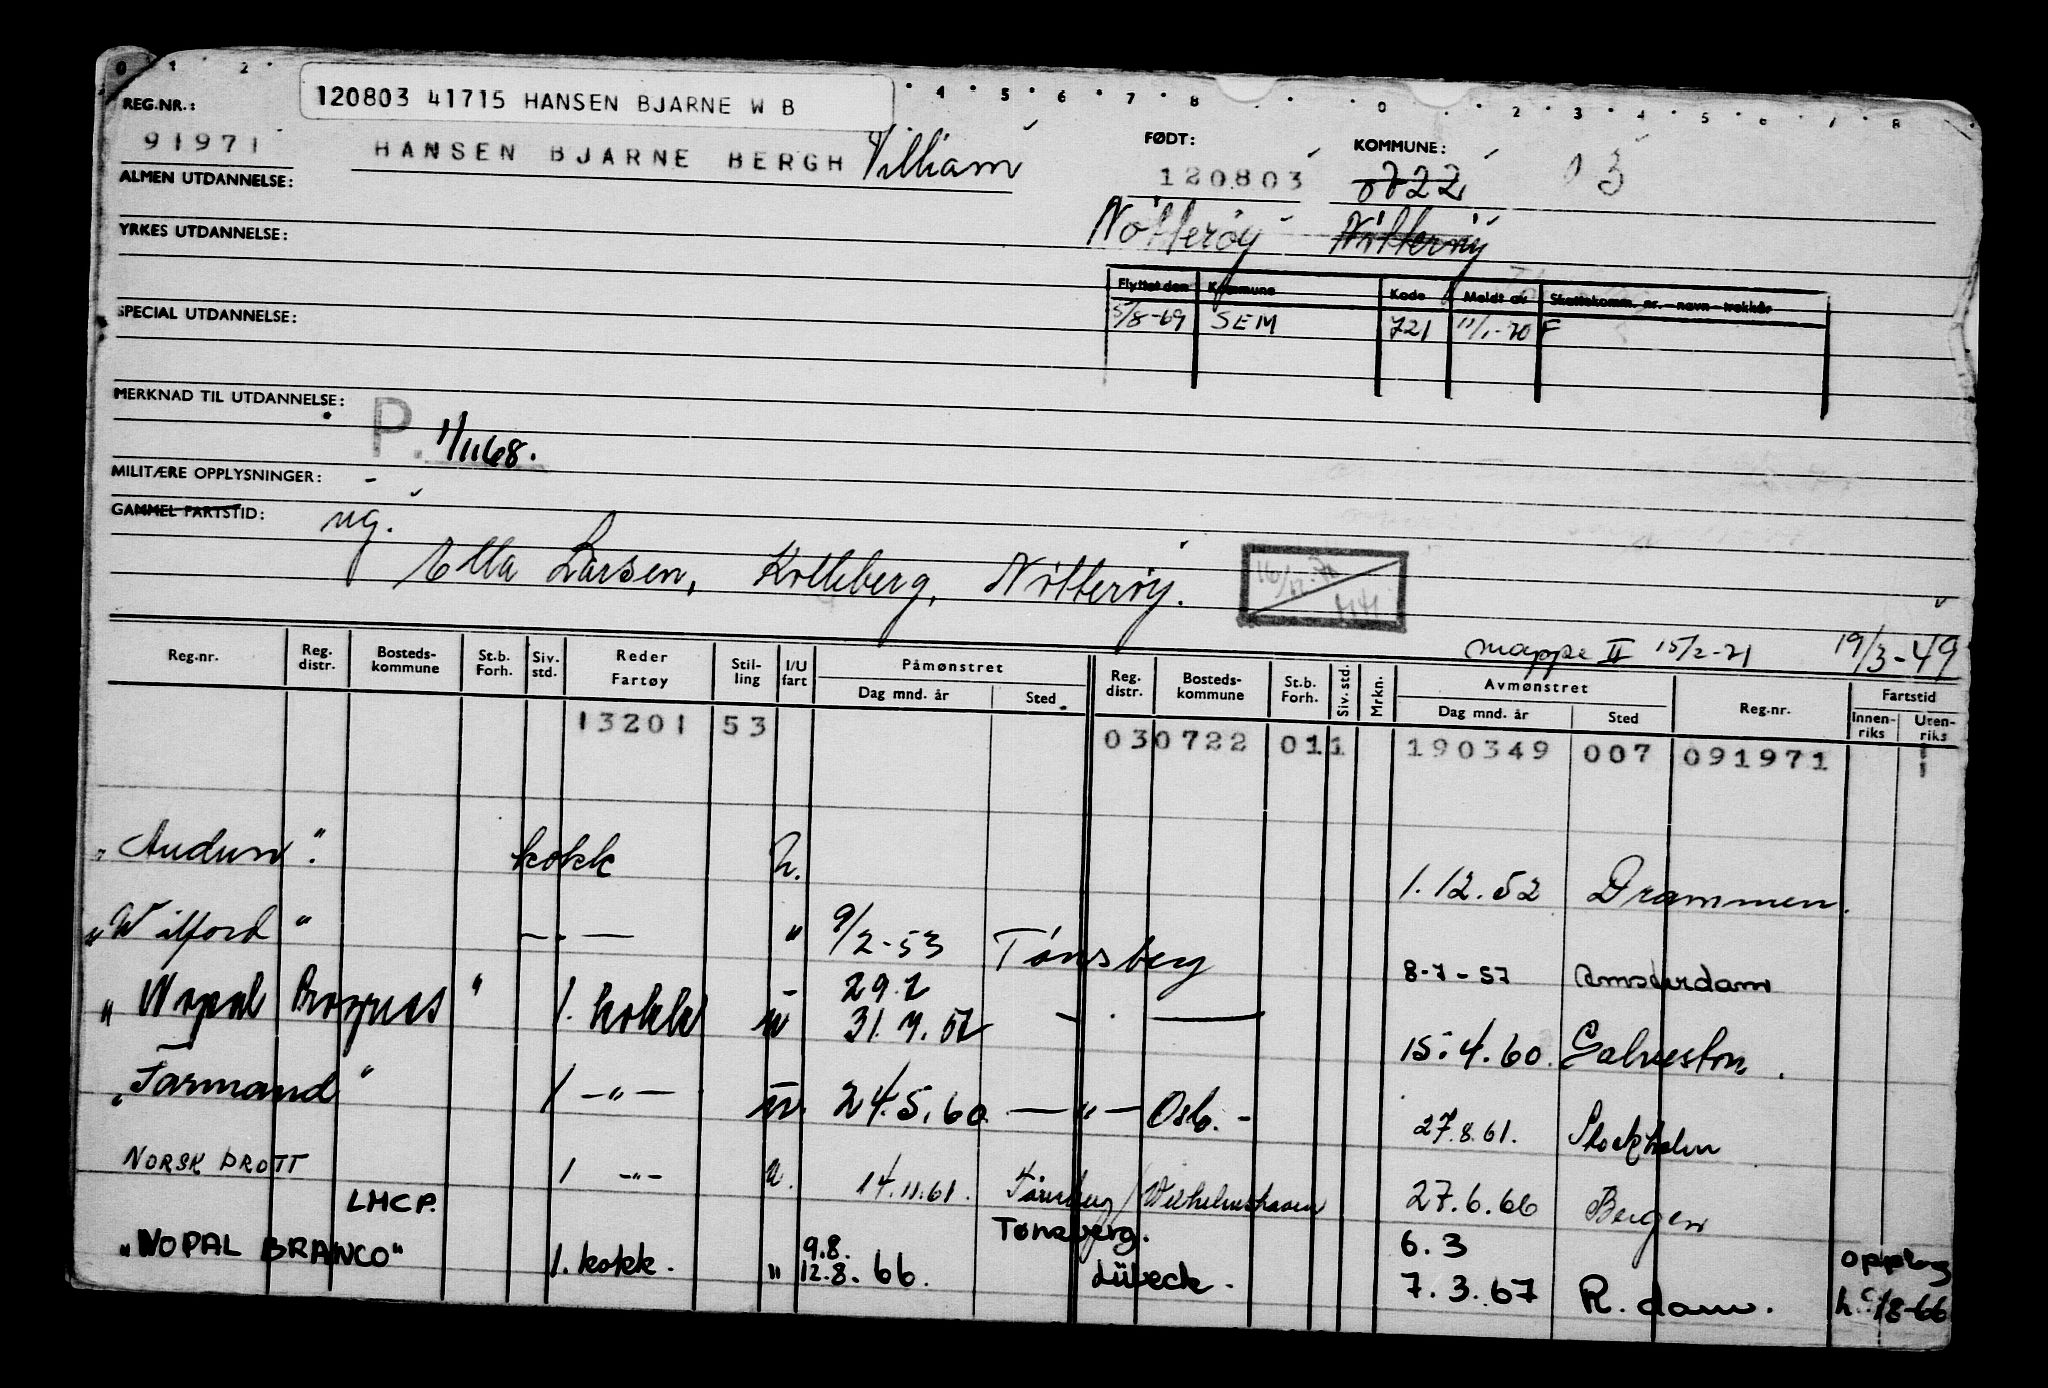 0 1 2 4 5 6 7 8 0 2 3 4 5 6 7 8
120803 41715 HANSEN BJARNE W B
REG.NR.:
91971
HANSEN BJARNE BERGH Villiam
FØDT:
120803
KOMMUNE:
0722
03
ALMEN UTDANNELSE:
Nøtterøy Nøtterøy
YRKES UTDANNELSE:
Flyttet den Kommune Kode Meldt av Skattekomm. nr. - navn - trekkår
5/8-69 SEM 721 11/1-70 F
SPECIAL UTDANNELSE:
MERKNAD TIL UTDANNELSE:
P. 1/1168.
MILITÆRE OPPLYSNINGER: -
GAMMEL FARTSTID:
ug.
Ella Larsen, Nøtterøy.
mappe II 15/2-71 19/3-49
Reg.nr. Reg. distr. Bosteds-kommune St.b. Forh. Siv. std. Reder Fartøy Stil-ling I/U fart Påmønstret Dag mnd. år Sted Reg. distr. Bosteds-kommune St.b. Forh. Siv. std. Mrkn. Avmønstret Dag mnd. år Sted Reg.nr. Fartstid Innen-riks Uten-riks
13201 53 030722 011 190349 007 091971
"Audun". kokk U. 1.12.52 Drammen.
"Wilford" -.- " 9/2-53 Tønsberg 8-7-57 Amsterdam
29.7
"Nopal Progress" 1. kokk U 31.7.57 - . - 15.4.60. Galveston.
"Farmand" 1 -"- U. 24.5.60 -"- Osb.- 27.8.61. Stockholm
NORSK DROTT 1 -"- U. 14.11.61. Tønsberg/Wilhelmshaven 27.6.66 Bergen
LHCP. Tønsberg.
"NOPAL BRANCO" 1. kokk. " 9.8. 12.8.66. Lübeck. 6.3 7.3.67 R.dam. opplag